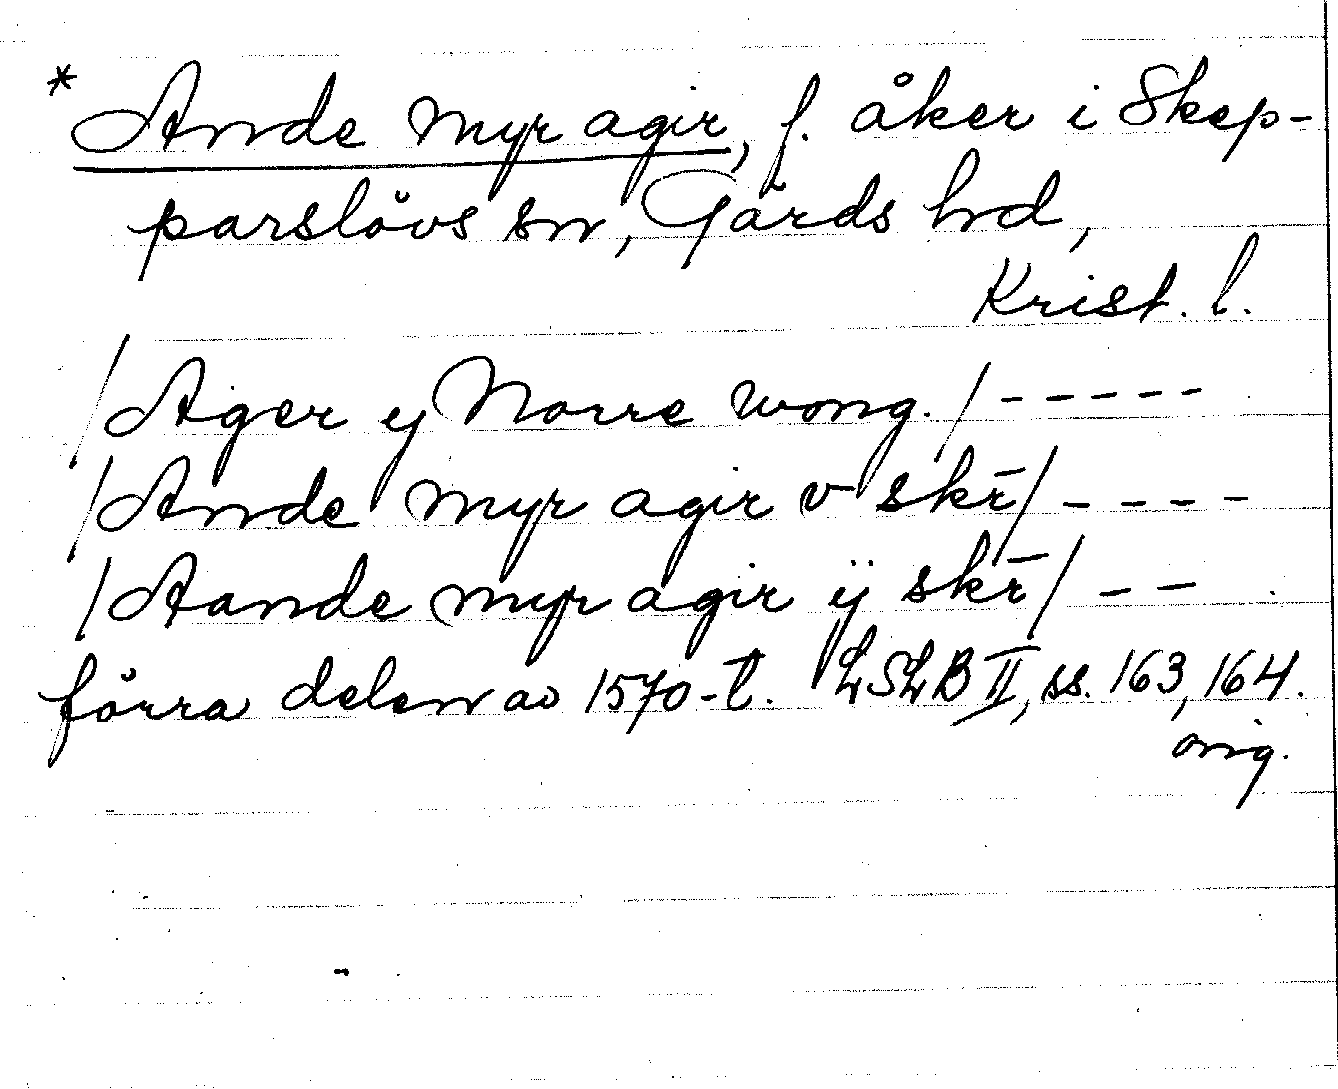 * Ande myr agir, f. åker i Skep-
parslövs sn, Gärds hrd,
Krist. l.
/Ager y Norre wong./-----
/Ande myr agir v skr̄/----
/Aande myr agir ÿ skr̄/--
förra delen av 1570-t. LSLB II, ss. 163, 164.
orig.